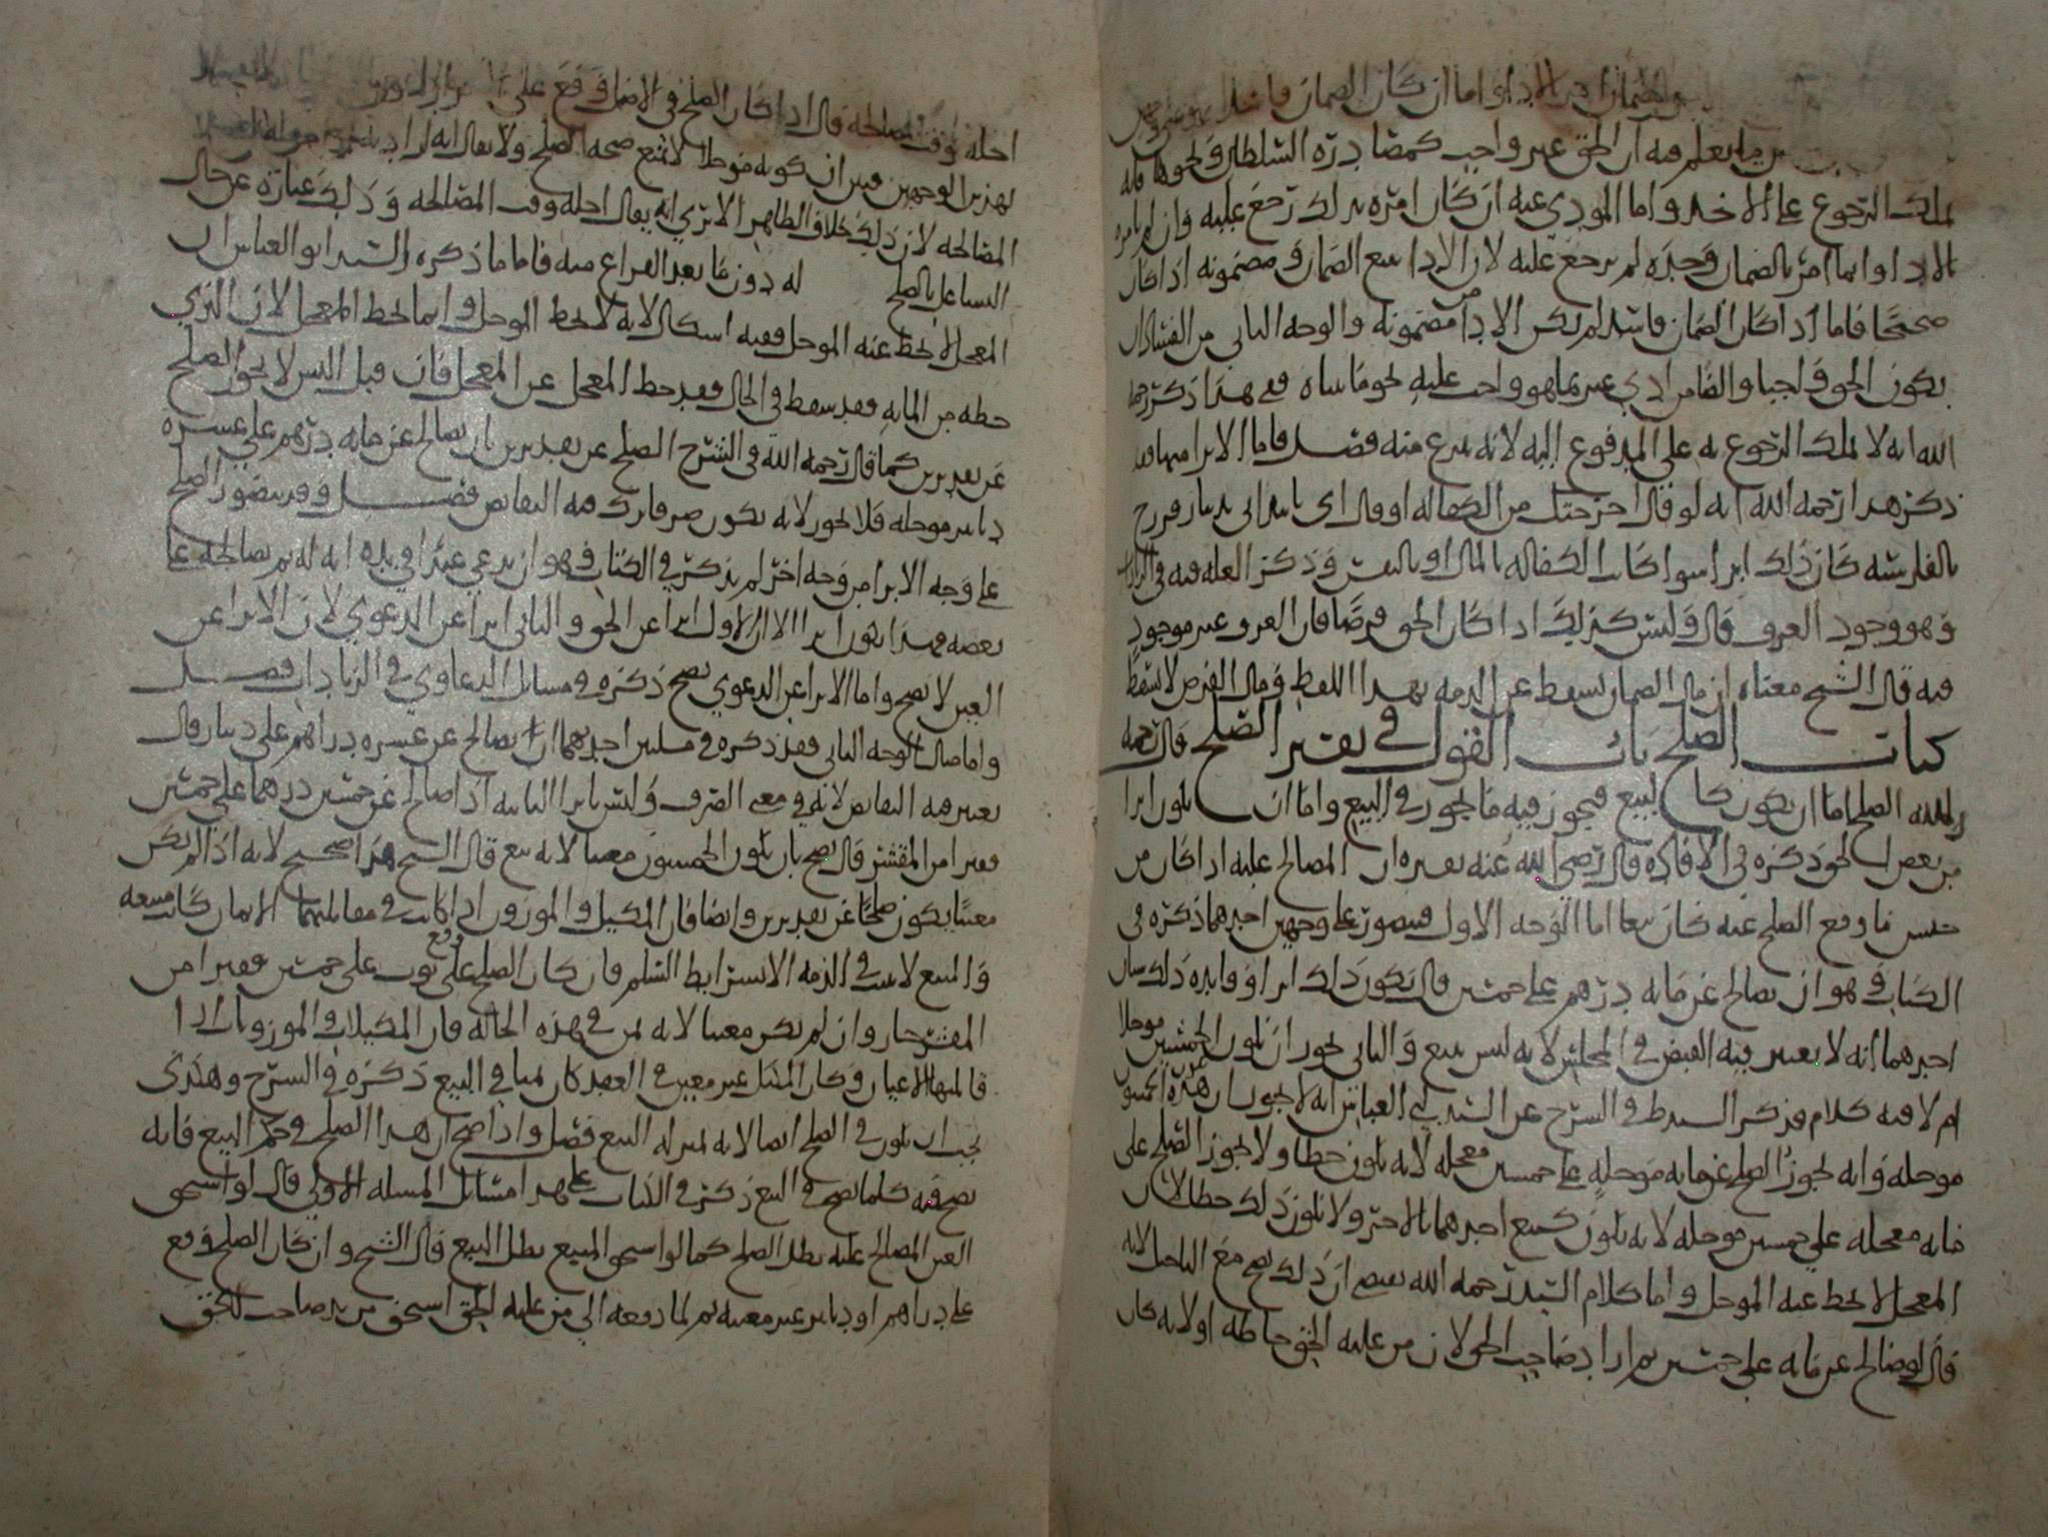 والضمان الادا واما ان كان الضمان فاسدا
ما يعلم فيه ان الحق غير واجب كمصادرة السلطان ونحوها فله
يملك الرجوع على الاخذ واما المودي عنه ان كان امره بذلك رجع عليه وان لم يامره
بالادا وانما امره بالضمان وحده لم يرجع عليه لان الادا يتبع الضمان ومضمونه اذا كان
صحيحا فاما اذا كان الضمان فاسدا لم يكن الادا مضمونه والوجه الثاني من الفساد ان
يكون الحق واجبا والضامن ادى غير ما هو واجب عليه نحو ما بيناه ففي هذا ذكر رحمه
الله انه لا يملك الرجوع به على المدفوع اليه لانه تبرع منه فصل فاما الابرا منها فقد
ذكر هذا رحمه الله انه لو قال اخرجتك من الكفالة او قال
كان ذلك ابرا سوا كانت الكفالة بالمال او بالنفس وذكر العلة فيه في
وهو وجود العرف قال وليس كذلك اذا كان الحق قرضا فان العرف غير موجود
فيه قال الشيخ معناه ان مال الضمان يسقط عن الذمة بهذا اللفظ ومال القرض لا يسقط
كتاب الصلح باب القول في الصلح قال رحمه
الله الصلح اما ان يكون كالبيع فيجوز فيه ما يجوز في البيع واما ان يكون ابرا
من بعض الحق ذكره في الافادة قال رضي الله عنه ان المصالح عليه اذا كان من
جنس ما وقع الصلح عنه كان بيعا اما الوجه الاول فيتصور على وجهين احدهما ذكره في
الكتاب وهو ان يصالح عن مايه درهم على خمسين قال يكون ذلك ابرا وفايدة ذلك
احدهما انه لا يعتبر فيه القبض في المجلس لانه ليس ببيع والثاني يجوز ان يكون الخمسين موجلا
ام لا فيه كلام فذكر السيد ط في الشرح عن السيد ابي العباس انه لا يجوز ان يكون هذه الخمسون
موجله وانه يجوز الصلح عن مايه موجله على خمسين معجله لانه يكون حطا ولا يجوز الصلح على
مايه معجله على خمسين موجله لانه يكون كبيع احدهما بالاخر ولا يكون ذلك حطا لان
المعجل لا يحط عنه الموجل واما كلام السيد رحمه الله يقتضي ان ذلك يصح مع التاجيل لانه
قال لو صالح عن مايه على خمسين ثم اراد صاحب الحق لان من عليه الحق حاطه او لانه كان
اجله وقت مصالحه قال اذا كان الصلح في الاصل وقع على
بهذين الوجهين فبين ان كونه موجلا لا يمنع صحه الصلح ولا يقال انه اراد
المصالحه لان ذلك خلاف الظاهر الا ترى انه يقال اجله وقت المصالحه وذلك عبارة عن حال
التساعل بالصلح له دون ما بعد الفراغ منه فاما ما ذكره السيد ابو العباس ان
المعجل لا يحط عنه الموجل ففيه اشكال لانه لا يحط الموجل وانما يحط المعجل لان الذي
حطه من المايه فقد سقط في الحال فقد حط المعجل عن المعجل فان قيل اليس لا يجوز الصلح
عن نقد بدين كما قال رحمه الله في الشرح الصلح عن نقد بدين بان يصالح عن مايه درهم على عشره
دنانير موجله فلا يجوز لانه يكون صرفا ترك فيه التقابض فصل وقد يتصور الصلح
على وجه الابرا من وجه اخر لم يذكر في الكتاب وهو ان يدعي عبدا في يده انه له ثم يصالحه على
بعضه فهذا يكون ابرا الا ان الاول ابرا عن الحق والثاني ابرا عن الدعوى لان الابرا عن
العين لا يصح واما الابرا عن الدعوى يصح ذكره في مسائل الدعاوي في الزيادات فصل
واما مثال الوجه الثاني فقد ذكره في مسلتين احدهما ان يصالح عن عشره دراهم على دينار قال
يعتبر فيه التقابض لانه في معنى الصرف وليس بابرا الثانيه اذا صالح عن خمسين درهما على خمسين
قفيزا من المقشر قال يصح بان يكون الخمسون معينا لانه بيع قال الشيخ هذا صحيح لانه اذا لم يكن
معينا يكون صلحا عن نقد بدين وايضا فان المكيل والموزون اذا كانت في مقابلتهما الاثمان كانت مبيعه
والمبيع لا يثبت في الذمه الا بشرايط السلم فان كان الصلح وقع على ثوب على خمسين قفيزا من
المقشر جاز وان لم يكن معينا لانه ثمن في هذه الحاله فان المكيلات والموزونات اذا
قابلتها الاعيان وكان المثل غير معين في العقد كان ثمنا في البيع ذكره في الشرح وهكذى
يجب ان يكون في الصلح ايضا لانه بمنزله البيع فصل واذا صح ان هذا الصلح في حكم البيع فانه
يصح فيه كلما يصح في البيع ذكر في الكتاب على هذا مسائل المسله الاولى قال لو استحق
العين المصالح عليه بطل الصلح كما لو استحق المبيع بطل البيع قال الشيخ وان كان الصلح وقع
على دراهم او دنانير غير معينه ثم لما دفعه الى من عليه الحق استحق من يد صاحب الحق